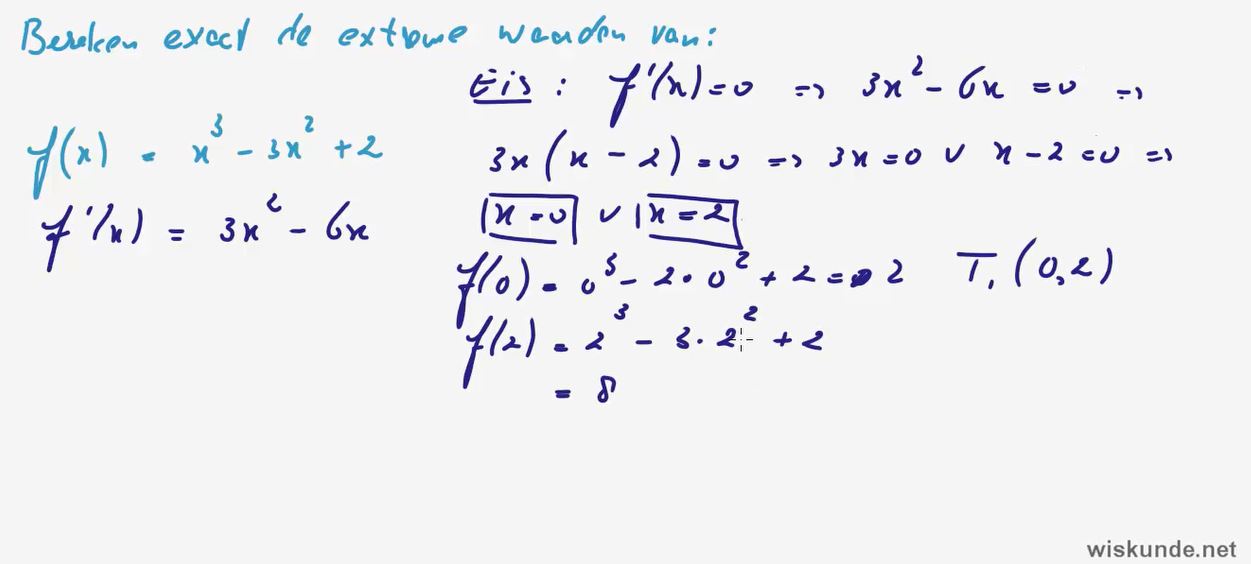 Bereken exact de extreme waarden van:
f(x) = x³ - 3x² + 2
f'(x) = 3x² - 6x
Eis : f'(x) = 0 => 3x² - 6x = 0 =>
3x (x - 2) = 0 => 3x = 0 v x - 2 = 0 =>
x = 0 v x = 2
f(0) = 0³ - 2 · 0² + 2 = 2 T₁ (0,2)
f(2) = 2³ - 3 · 2² + 2
= 8
wiskunde.net